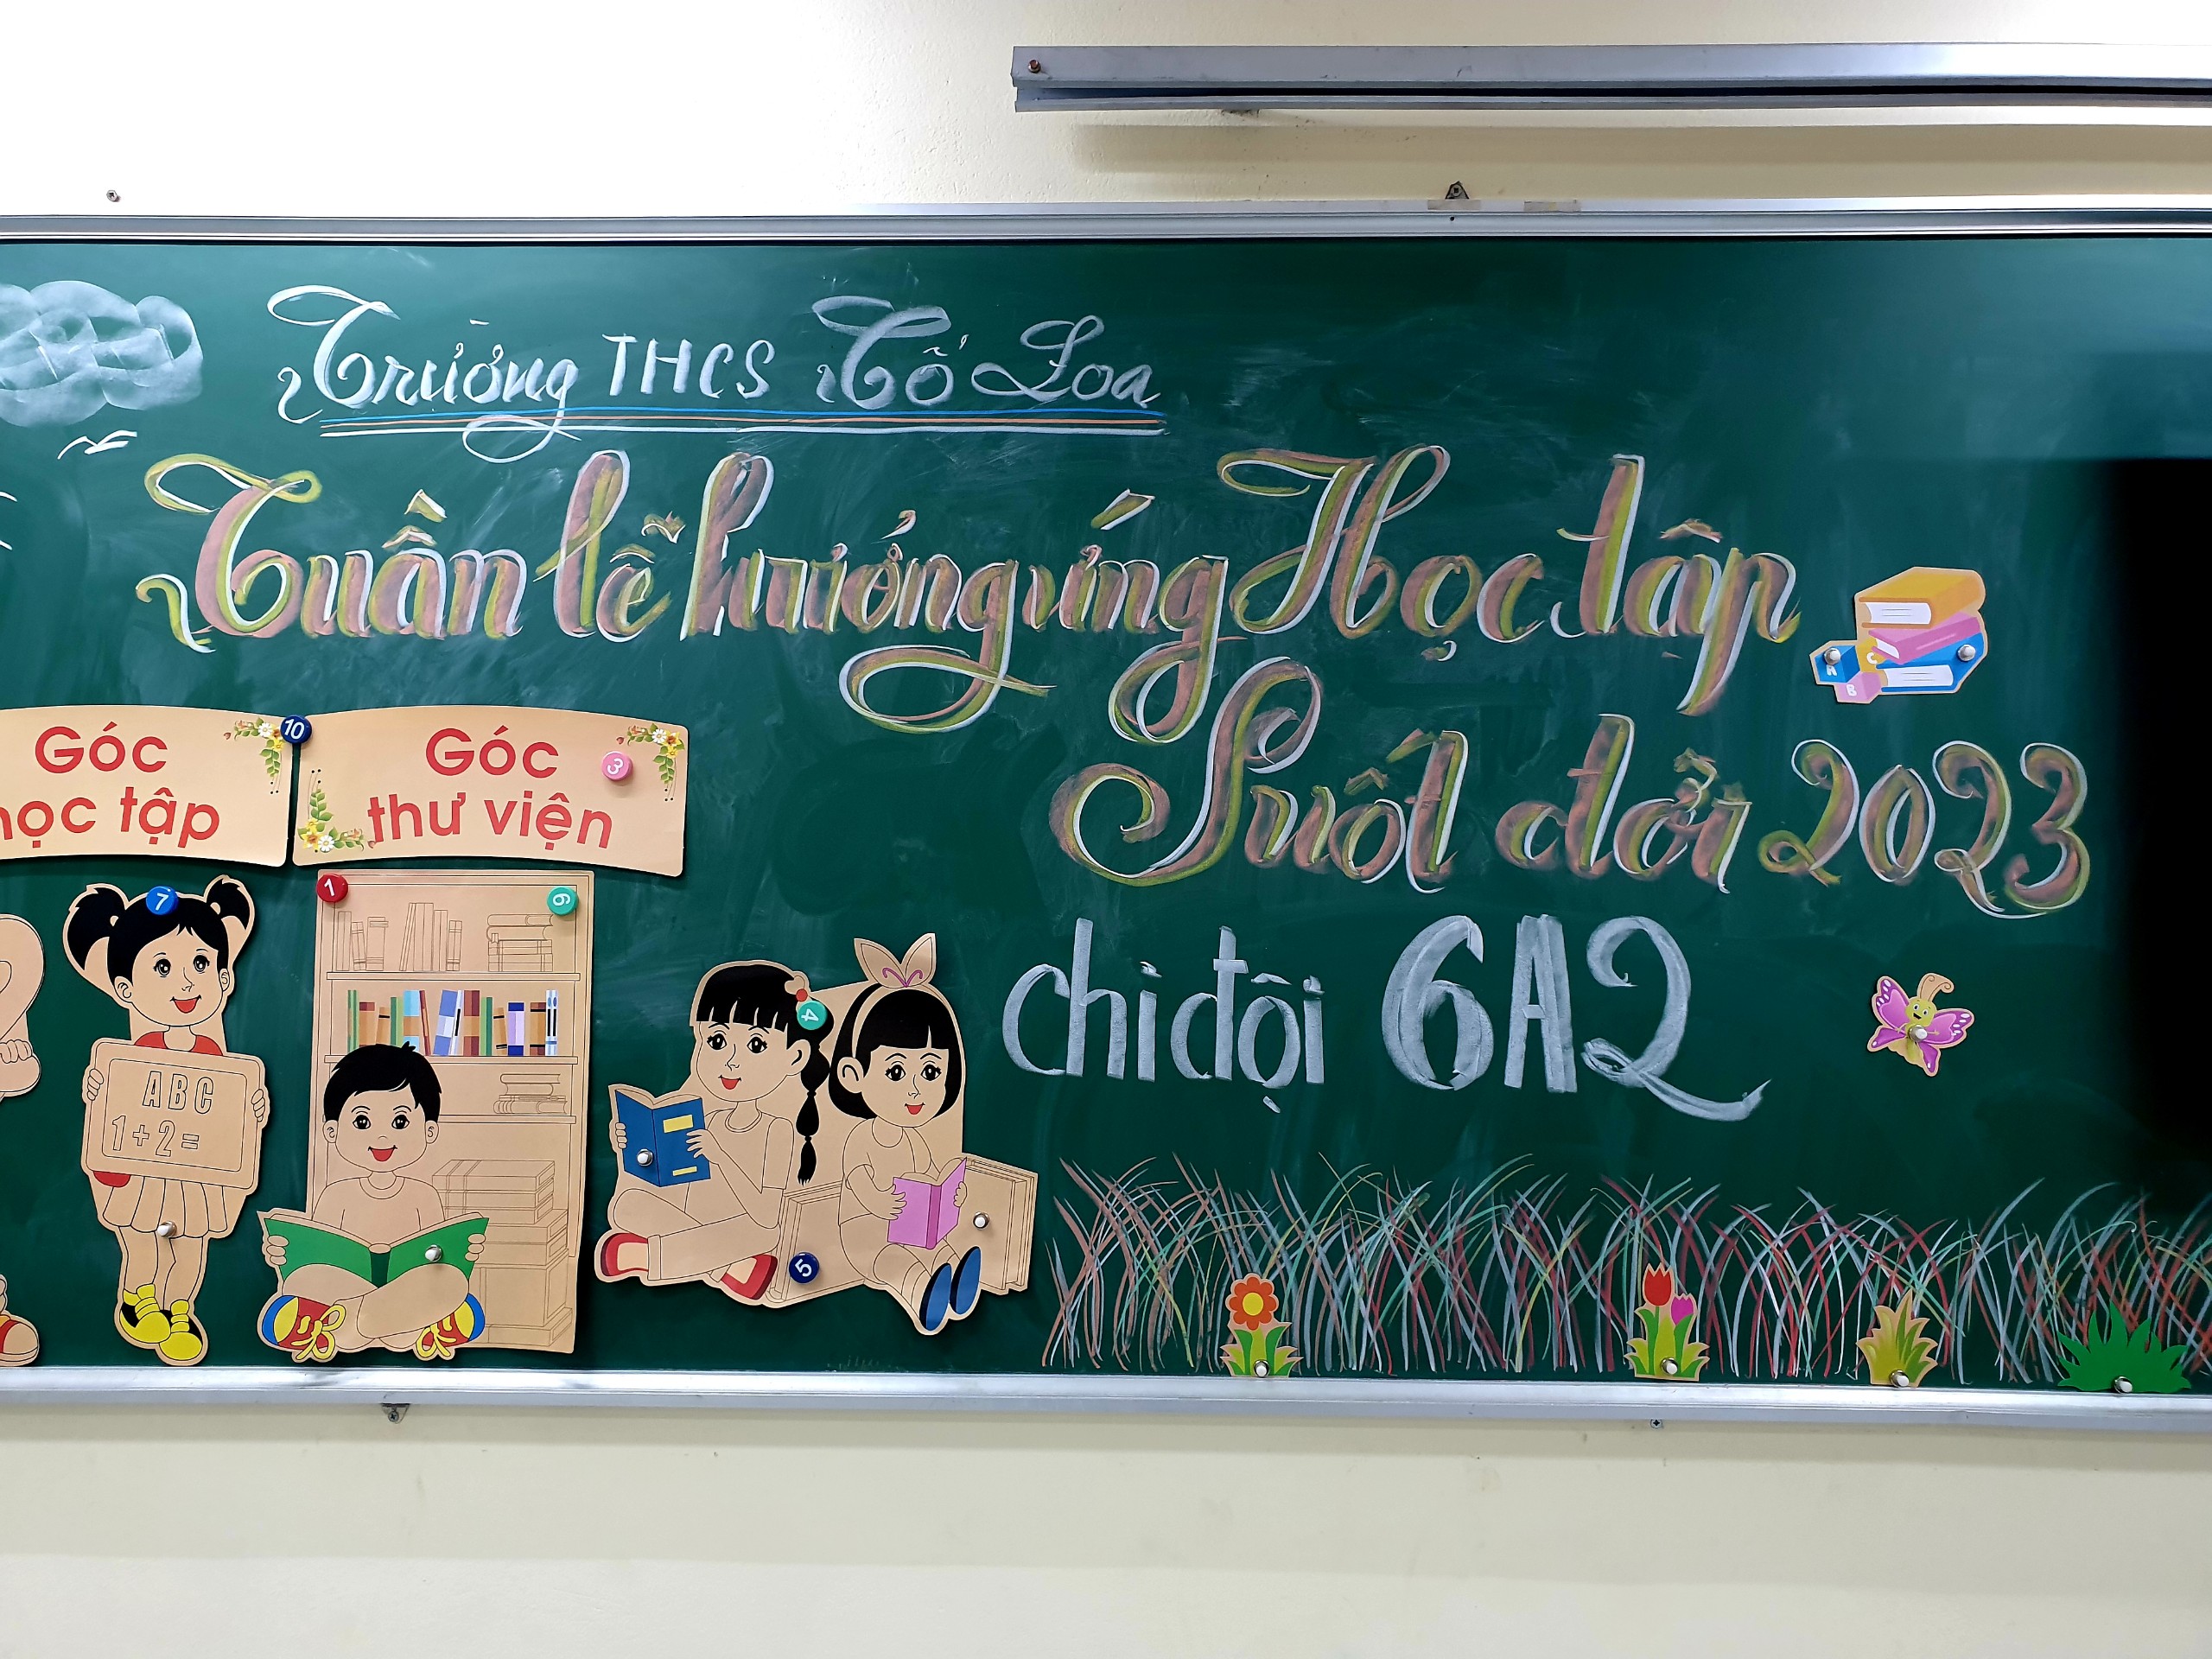 Trường THCS Cổ Loa
Tuần lễ hưởng ứng Học tập
Suốt đời 2023
chi đội 6A2
Góc
học tập
Góc
thư viện
10
3
7
1
6
4
5
ABC
1+2=
A
B
C